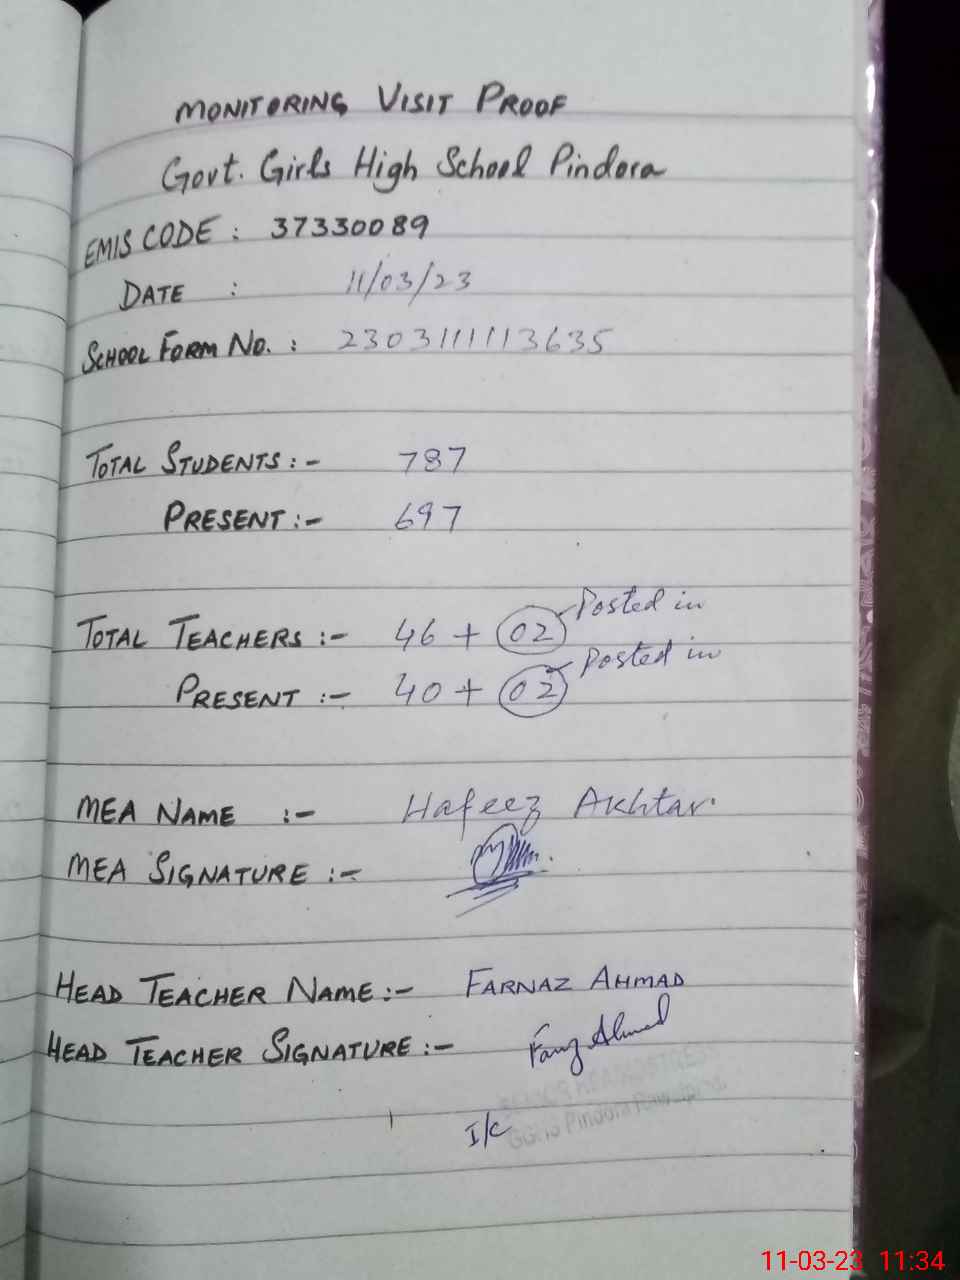 MONITORING VISIT PROOF
Govt. Girls High School Pindora
EMIS CODE : 37330089
DATE : 11/03/23
SCHOOL FORM NO. : 2303111113635
TOTAL STUDENTS :- 787
PRESENT :- 697
TOTAL TEACHERS :- 46 + 02 Posted in
PRESENT :- 40 + 02 Posted in
MEA NAME :- Hafeez Akhtar.
MEA SIGNATURE :-
HEAD TEACHER NAME :- FARNAZ AHMAD
HEAD TEACHER SIGNATURE :- Ahmad
SENIOR HEADMISTRESS
I/C GGHS Pindora Rawalpindi
11-03-23 11:34